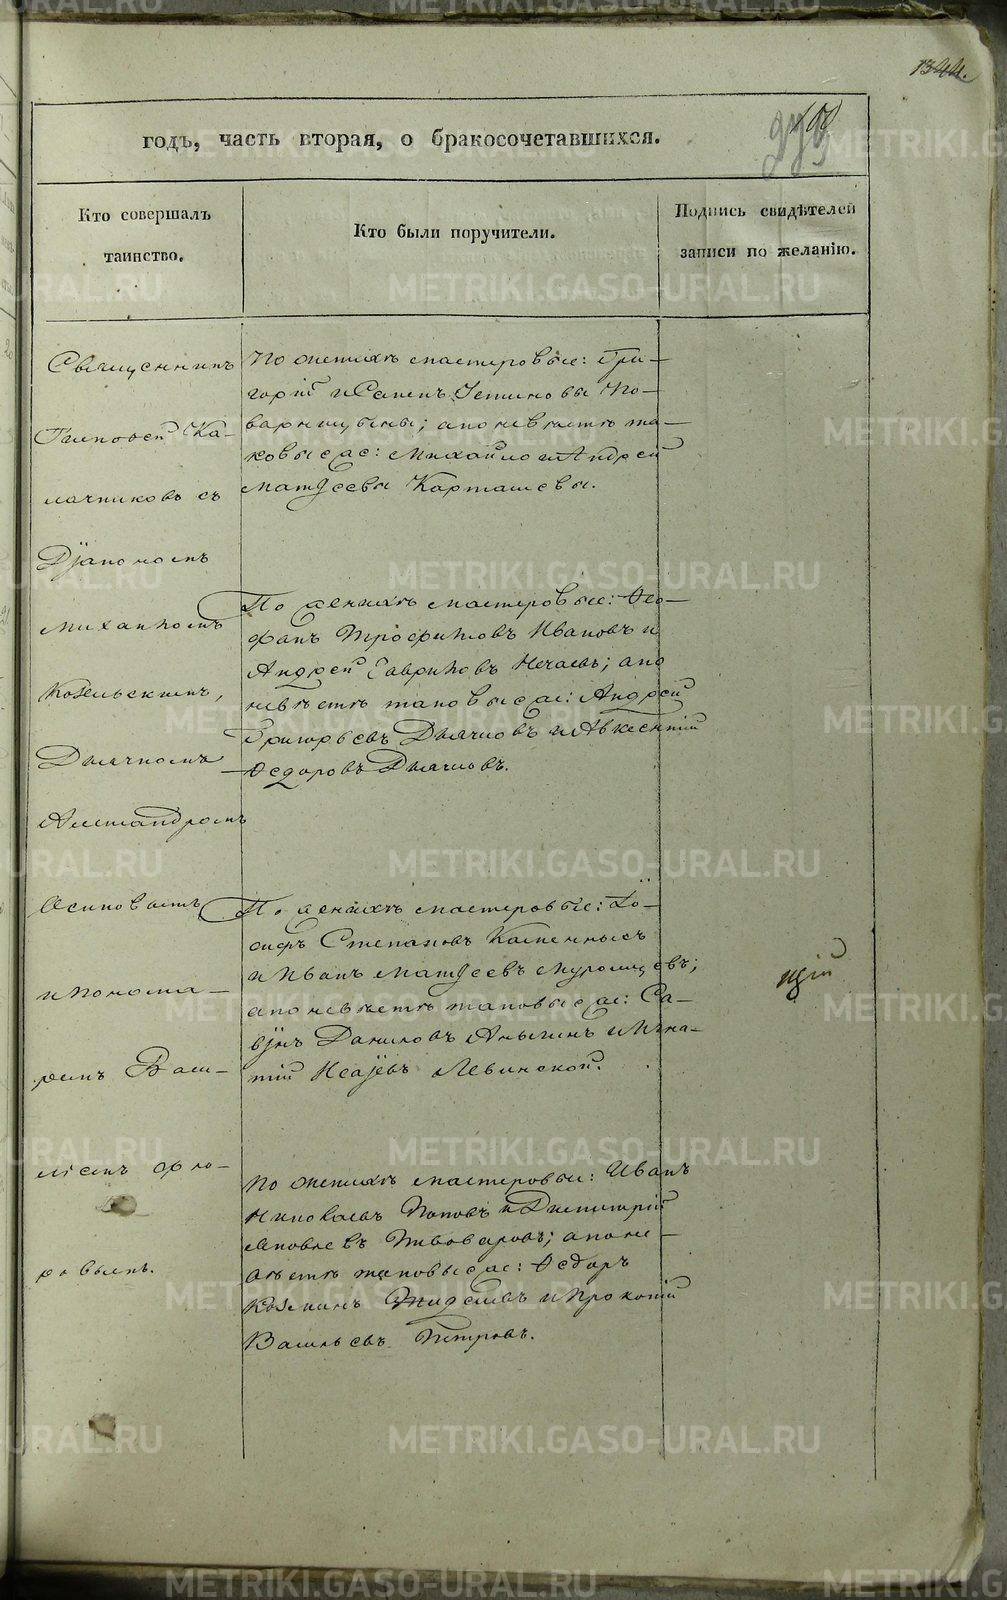 1344.
100
годъ, часть вторая, о бракосочетавшихся.
Кто совершалъ
таинство.
Кто были поручители.
Подпись свидѣтелей
записи по желанію.
Священникъ
Калачниковъ съ
Діакономъ
Михаиломъ
Дьячкомъ
Александромъ
Осиповымъ
и понома-
ремъ Васи-
ліемъ Фло-
ровымъ.
По женихѣ мастеровые: Гри-
горій и Устиновы По-
варницыны; а по невѣстѣ та-
ковые же: Михайло и Андрей
Матѳеевы Карташевы.
По женихѣ мастеровые: Ѳео-
фанъ Трофимовъ Ивановъ и
Андрей Гавриловъ Нечаевъ; а по
невѣстѣ таковые же: Андрей
Григорьевъ Дьячковъ и Авксентій
Ѳедоровъ Дьячковъ.
По женихѣ мастеровые: Іо-
сифъ Степановъ Каменныхъ
и Иванъ Матѳеевъ Муромцевъ;
а по невѣстѣ таковые же: Са-
винъ Даниловъ Аньгинъ и Игна-
тій Исаіевъ Левинской.
щій
По женихѣ мастеровые: Иванъ
Николаевъ Поповъ и Димитрій
Яковлевъ Пивоваровъ; а по не-
вѣстѣ таковые же: Ѳедоръ
Козминъ и Прокопій
Васильевъ Петровъ.
METRIKI.GASO-URAL.RU